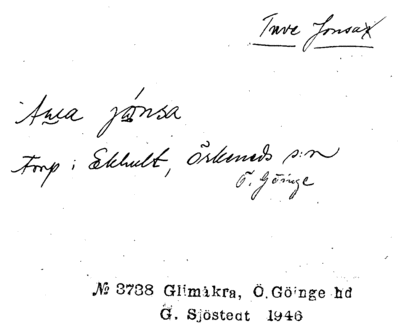 Tuve Jonsa
Auca jónsa
torp i Ekhult, Örkeneds s:n
Ö. Göinge
№ 3738 Glimåkra, Ö. Göinge hd
G. Sjöstedt 1946